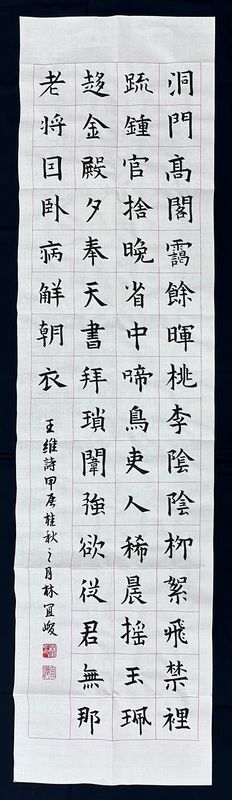 洞門髙閣靄餘暉桃李陰陰栁絮飛禁裡
疏鍾官舍晚省中啼鳥吏人稀晨摇玉珮
趍金殿夕奉天書拜瑣闈強欲從君無那
老将因卧病解朝衣
王維詩甲辰桂秋之月林宜峻